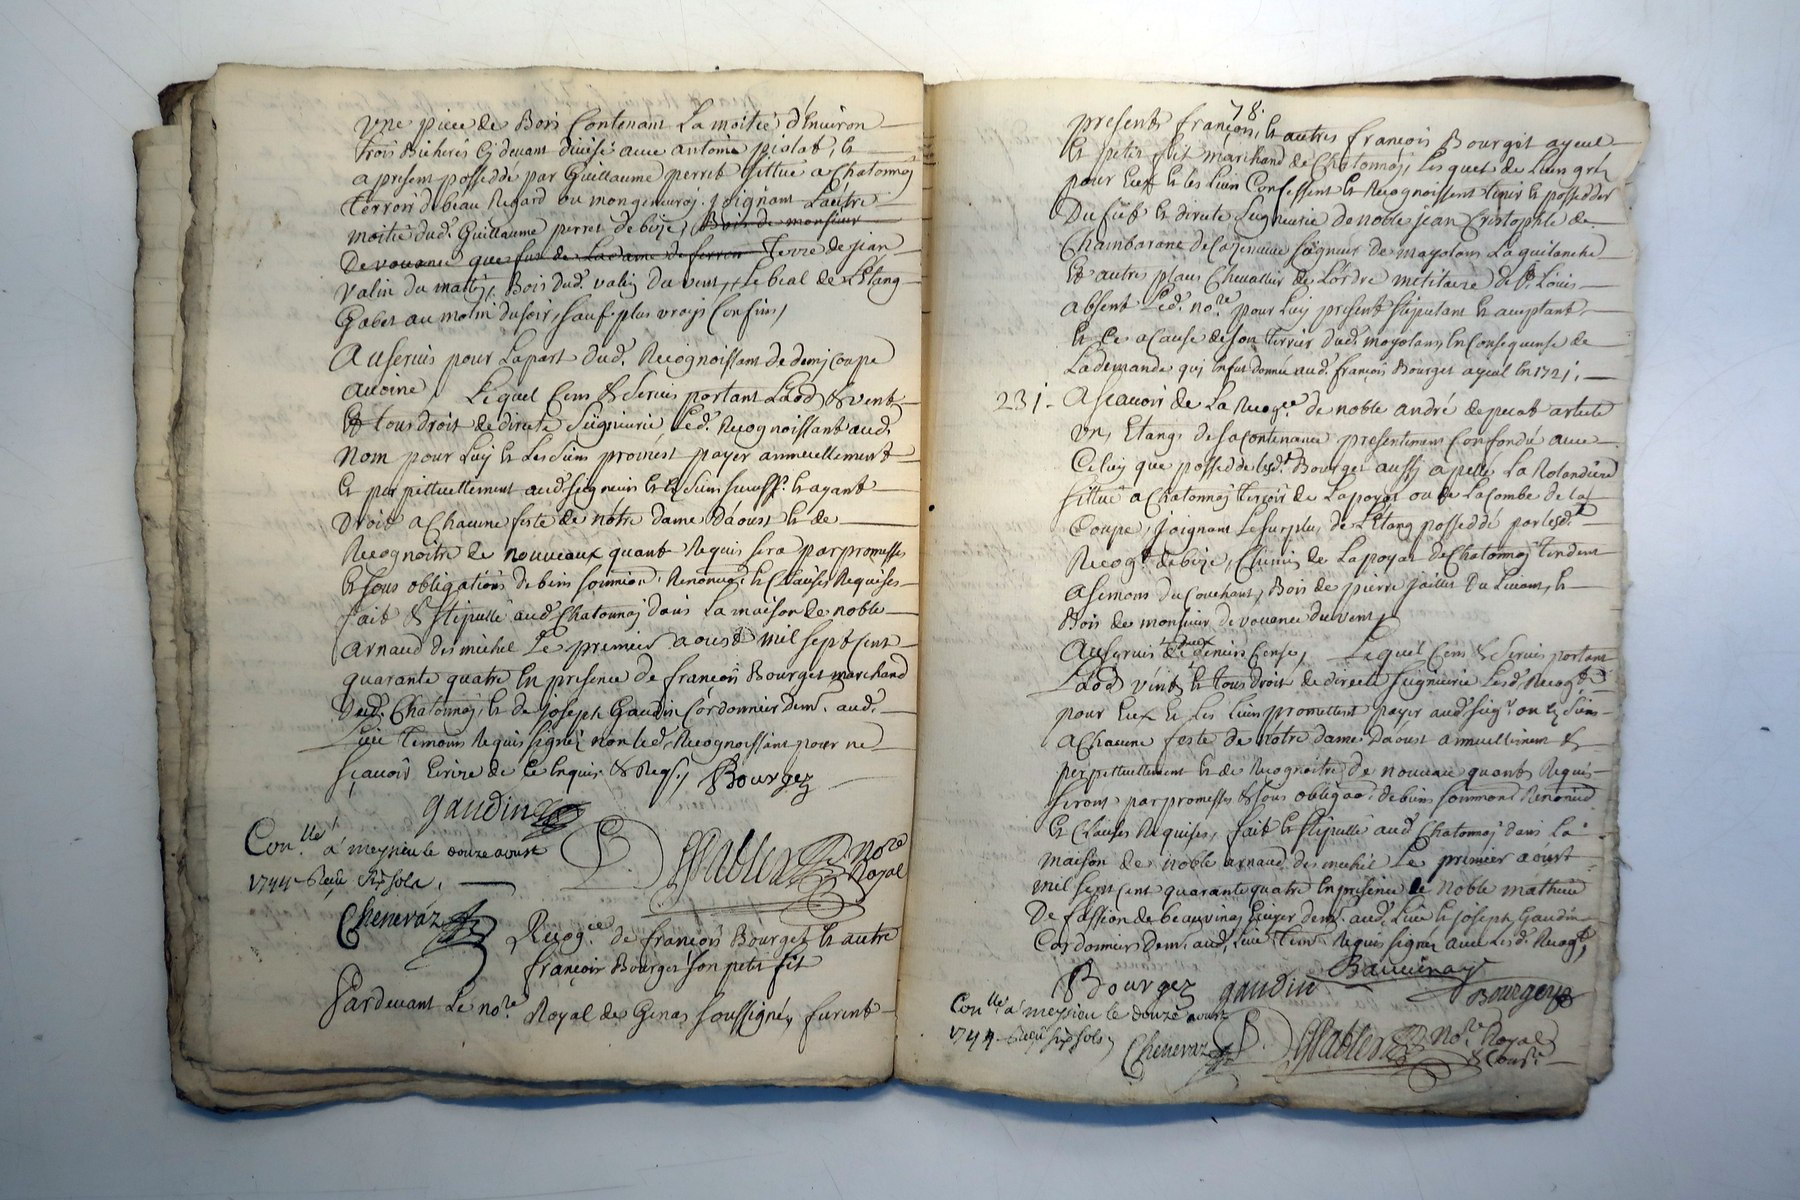 Une piece de Bois Contenant La moitié d'Environ
trois Bicherés Cy devant divisé avec antoine piolat, et
a present possedé par Guillaume perret sittué a Chatonnoj
terroir de beau Regard ou mongineuroj joignant L'autre
moitié dud. Guillaume perret de bize, Bois de monsieur
De vouance que fus de La dame de ferron terre de jean
valin du matin, Bois dud. valin du vent, Le beal de L'Etang
Gabet au molin du soir, sauf plus vrays Confins,
Au servis pour La part dud. Recognoissant de demj Coupe
avoine, Lequel Cens & servis portant Laod & vents
Et tous droit de directe Seigneurie Led. Recognoissant aud.
Nom pour Luy et Les Siens promest payer annuellement
et perpettuellement aud. Seigneur et es Siens success. et ayant
Droit a Chacune feste de notre dame Daoust et de
Recognoitre de nouveaux quant Requis sera par promesses
et sous obligations de biens Renonng et Clauses Requises
fait & stipullé aud. Chatonnoj dans La maison de noble
arnaud des michel Le premier aoust mil sept cent
quarante quatre En presence de françois Bourget marchand
Dud. Chatonnoj, et de joseph Gaudin Cordonnier dem. aud.
Lieu temoins Requis signés non Led. Recognoissant pour ne
sçavoir Ecrire de Ce Enquis & Reqs., Bourgez
gaudin
Con.lle à meysieu le douze aoust
1744 Reçu six sols,
No.re
Royal
Chenevaz
Recog.ce de françois Bourget et autre
françois Bourget son petit fit
Pardevant Le no.re Royal de Genas soussigné, furent
78.
presents françois, et autres françois Bourget ayeul
Et petit fit marchand de Chatonnoj, Lesquels de Leur gré
pour Eux et les Siens Confessent et Recognoissent tenir et posseder
Du fief et directe Seigneurie de noble jean Cristophle de
Chambarane de seigneur de moyolans La guilanche
Et autres places Chevallier de L'ordre militaire de S. Louis
absent Led. no.re pour Luy present stipulant et acceptant
Et Ce a Cause de son terrier dud. moyolans, En Consequense de
La demande quj En fut donnée aud. françois Bourget ayeul En 1721,
231. A sçavoir de La Recog.ce de noble andré de pecat article
Un, Etangs de sa Contenance presentement Confondu avec
Celuy que possedde Lesd. Bourget aussj apellé La Rolandiere
sittué a Chatonnoj terroir de Lapoyat ou de La Combe de la
Coupe, joignant Le surplus de L'Etang posseddé par Lesd.
Recog.t de bize, Chemin de Lapoyat de Chatonnoj tendent
a semons du Couchant, Bois de pierre jaillet du Levant, et
Bois de monsieur de vouance du vent,
Au servis de deux deniers Censes, Lequel Cens & servis portant
Laod vents et tous droit de directe Seigneurie Lesd. Recog.t
pour Eux et Les Siens promettent payer aud. Seig.r ou es Siens
a Chacune feste de notre dame Daoust annuellement &
perpettuellement et de Recognoitre de nouveau quant Requis
seront par promesses & sous obligao. de biens soumions Renoncid
Et Clauses Requises, fait et stipullé aud. Chatonnoj dans La
maison de noble arnaud des michel Le premier aoust
mil sept cent quarante quatre En presence de noble mathieu
De fassion de beauvinaj Ecuyer dem. aud. Lieu et joseph Gaudin
Cordonnier dem. aud. Lieu tem. Requis signés avec Lesd. Recog.t,
Bourgez gaudin Bauvinay Bourgey
Con.lle à meysieu le douze aoust
1744 Reçu six sols,
Chenevaz No.re Royal